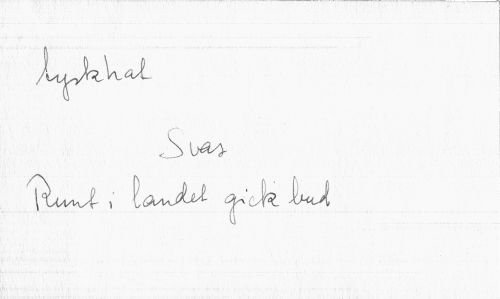 tyskhat
Svas
Runt i landet gick bud